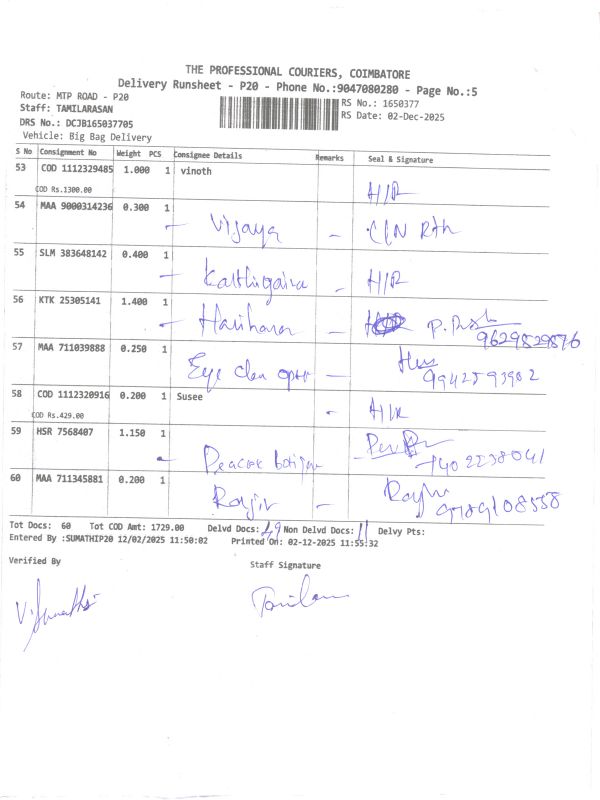 THE PROFESSIONAL COURIERS, COIMBATORE
Delivery Runsheet - P20 - Phone No.:9047080280 - Page No.:5
Route: MTP ROAD - P20
Staff: TAMILARASAN
DRS No.: DCJB165037705
Vehicle: Big Bag Delivery
RS No.: 1650377
RS Date: 02-Dec-2025
S No Consignment No Weight PCS Consignee Details Remarks Seal & Signature
53 COD 1112329485 1.000 1 vinoth
COD Rs.1300.00 H/R
54 MAA 9000314236 0.300 1
Vijaya –
55 SLM 383648142 0.400 1
– H/R
56 KTK 25305141 1.400 1
Hariharan –
9629829876
57 MAA 711039888 0.250 1
Eye –
9942593902
58 COD 1112320916 0.200 1 Susee
COD Rs.429.00 - H/R
59 HSR 7568407 1.150 1
Peacock
60 MAA 711345881 0.200 1
Rajiv –
Tot Docs: 60 Tot COD Amt: 1729.00 Delvd Docs: 49 Non Delvd Docs: 11 Delvy Pts:
Entered By :SUMATHIP20 12/02/2025 11:50:02 Printed On: 02-12-2025 11:55:32
Verified By
Staff Signature